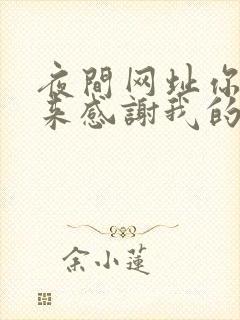 夜間网址你
来感謝我的
余小蓮